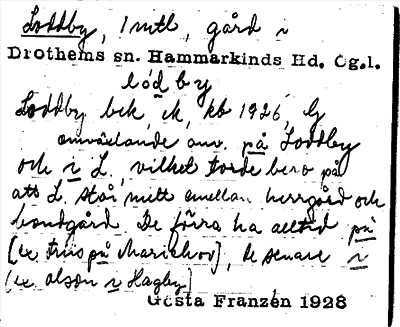 Loddby, 1 mtl, gård i
Drothems sn. Hammarkinds Hd. Ög.l.
lódby
Loddby bek, ek, kb 1926, G
omväxlande anv. på Loddby
och i L, vilket torde bero på
att L. står mitt emellan herrgård och
bondgård. De förra ha alltid på
(ex. på Mariehov), de senare i
(ex olson i Hagby)
Gösta Franzén 1928